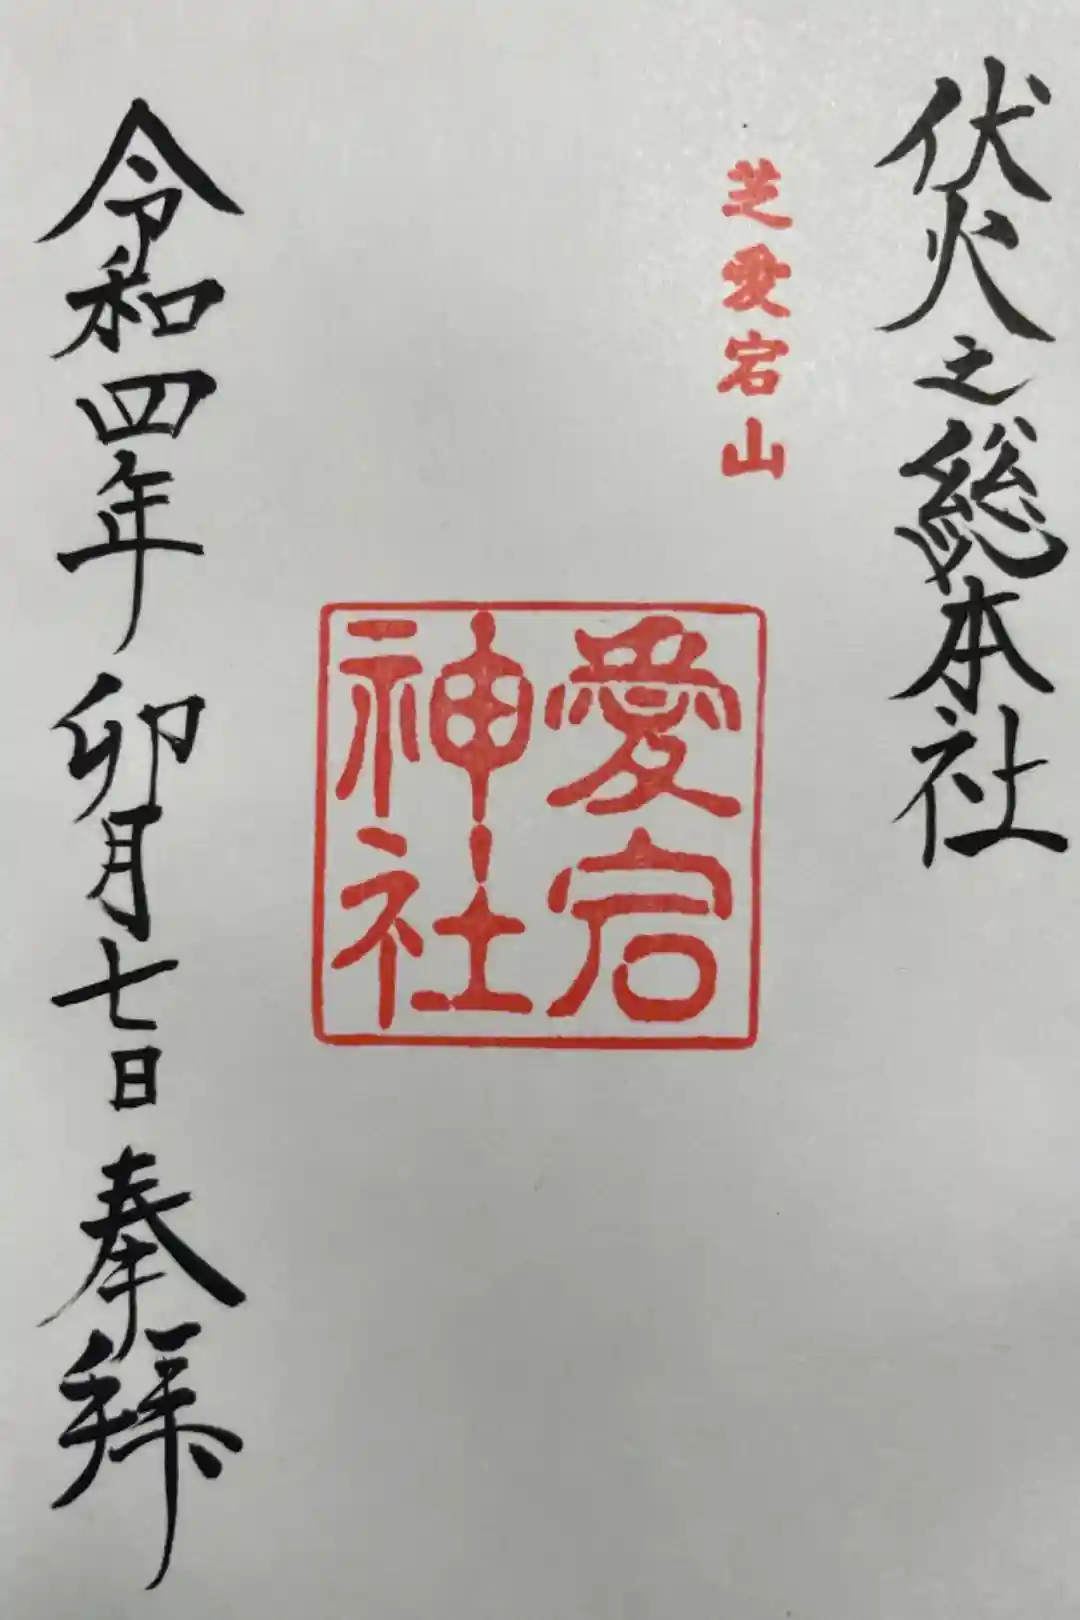 伏火之總本社
芝愛宕山
愛宕
神社
令和四年 卯月七日 奉拜